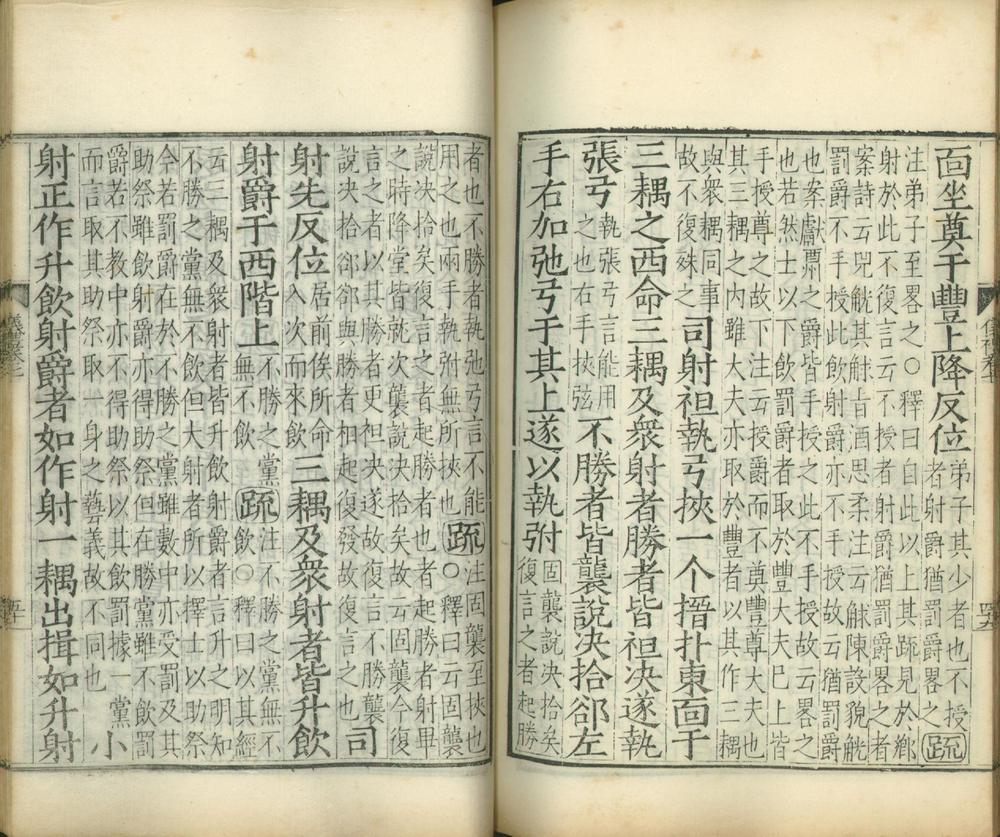 面坐奠于豐上降反位
弟子其少者也不授
者射爵猶罰爵畧之
疏
注弟子至畧之○釋曰自此以上其䟽見於鄉
射於此不復言云不授者射爵猶罰爵畧之者
案詩云兕觥其觩旨酒思柔注云觩陳設貌觥
罰爵不手授此飲射爵亦不手授故云猶罰爵
也案獻酬之爵皆手授之此不手授故云畧之
也若然士以下飲罰爵者取於豐大夫巳上皆
手授尊之故下注云授爵而不奠豐尊大夫也
其三耦之內雖大夫亦取於豐者以其作三耦
與衆耦同事
故不復殊之
司射袒執弓挾一个搢扑東面于
三耦之西命三耦及衆射者勝者皆袒决遂執
張弓
執張弓言能用
之也右手挾弦
不勝者皆襲說决拾郤左
手右加弛弓于其上遂以執弣
固襲說决拾矣
復言之者起勝
者也不勝者執弛弓言不能
用之也兩手執弣無所挾也
疏
注固襲至挾也
○釋曰云固襲
說决拾矣復言之者起勝者也者起勝者射畢
之時降堂皆就次襲說决拾矣故云固襲今復
言之者以其勝者更袒决遂故復言不勝襲
說决拾郤郤與勝者相起復發故復言之也
司
射先反位
居前俟所命
入次而來飲
三耦及衆射者皆升飲
射爵于西階上
不勝之黨
無不飲
疏
注不勝之黨無不
飲○釋曰以其經
云三耦及衆射者皆升飲射爵者言升之明知
不勝之黨無不飲但大射者所以擇士以助祭
今若罰爵在於不勝之黨雖數中亦受罰及其
助祭雖飲射爵亦得助祭但在勝黨雖不飲罰
爵若不教中亦不得助祭以其飲罰據一黨
而言取其助祭取一身之藝義故不同也
小
射正作升飲射爵者如作射一耦出揖如升射